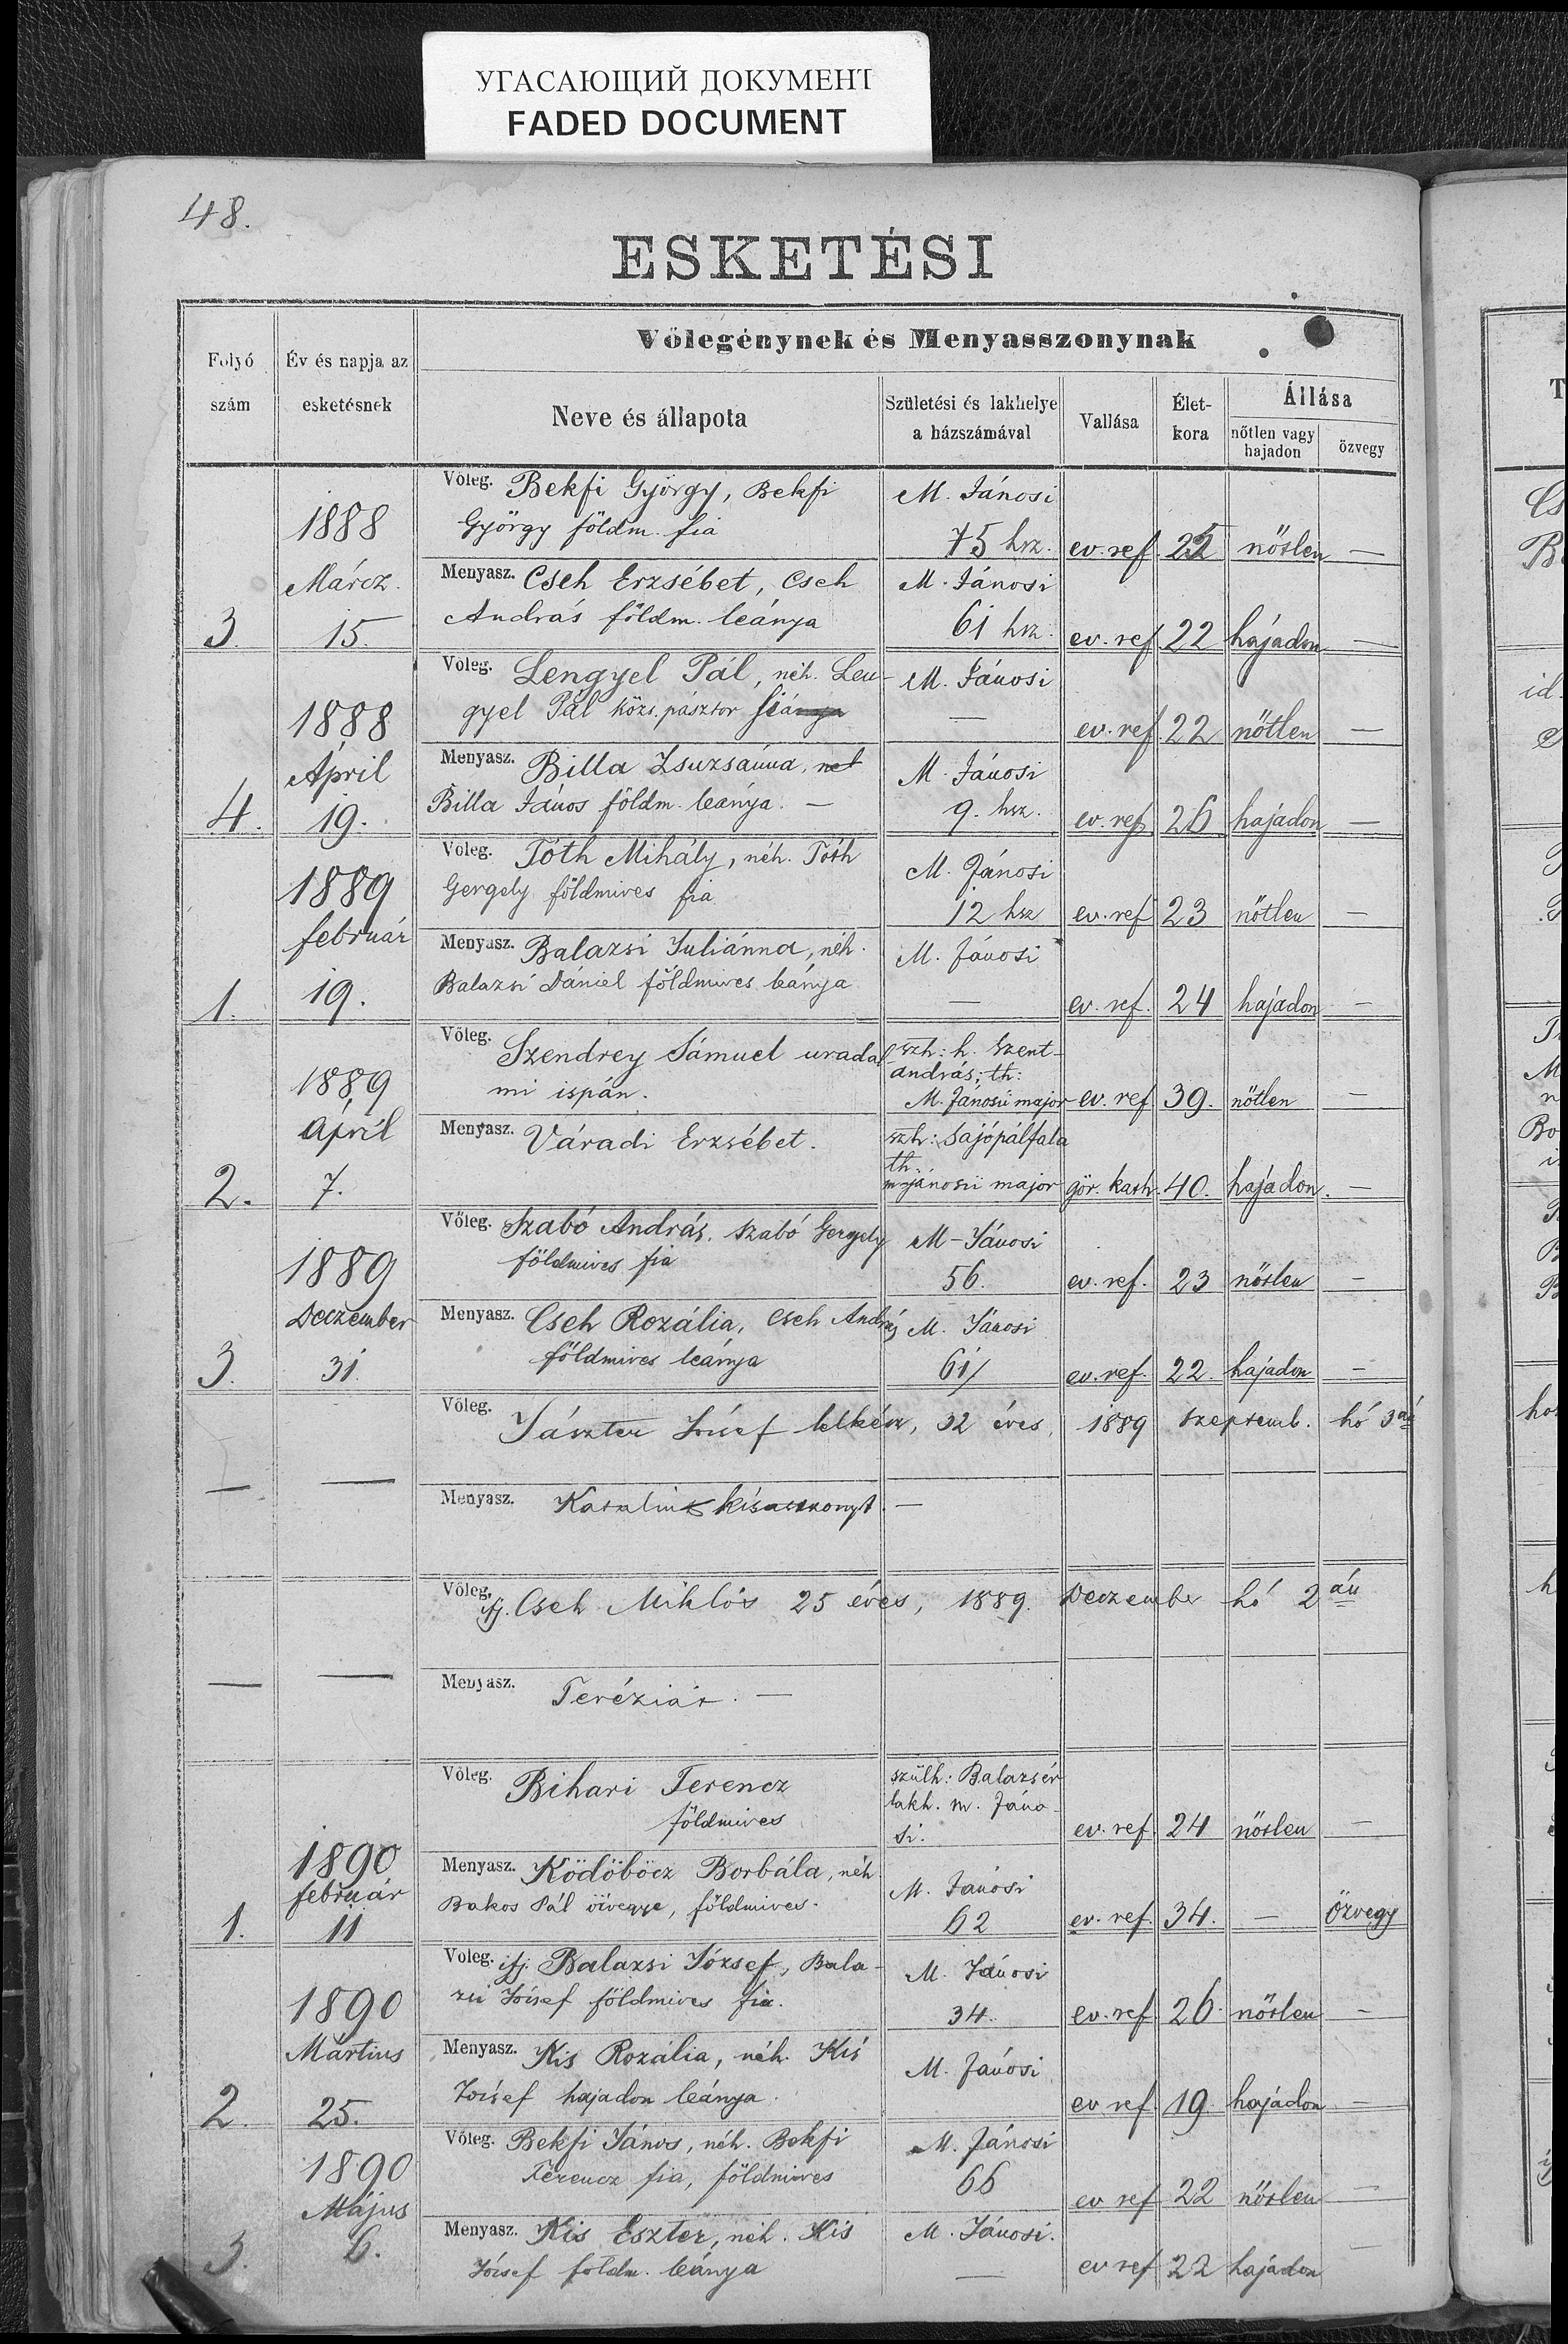 УГАСАЮЩИЙ ДОКУМЕНТ
FADED DOCUMENT
48.
ESKETÉSI
Folyó szám
Év és napja az esketésnek
Võlegénynek és Menyasszonynak
Neve és állapota
Születési és lakhelye a házszámával
Vallása
Élet-kora
Állása
nőtlen vagy hajadon
özvegy
Võleg. Bekfi György, Bekfi M. Jánosi
1888 György földm. fia 75 hsz. ev. ref. 22 nőtlen —
Márcz. Menyasz. Cseh Erzsébet, Cseh M. Jánosi
3. 15. András földm. leánya 61 hsz. ev. ref 22 hajadon —
Võleg. Lengyel Pál, néh. Len- M. Jánosi
1888 gyel Pál közs. pásztor fia — ev. ref. 22 nőtlen —
Április Menyasz. Billa Zsuzsánna, M. Jánosi
4. 19. Billa János földm. leánya. — 9. hsz. ev. ref 26 hajadon —
Võleg. Tóth Mihály, néh. Tóth M. Jánosi
1889 Gergely földmives fia 12 hsz ev. ref 23 nőtlen —
február Menyasz. Balazsi Juliánna, néh. M. Jánosi
1. 19. Balazsi Dániel földmives leánya — ev. ref. 24 hajadon —
Võleg. Szendrey Sámuel uradal szh: h. Szent-
1889 mi ispán. andrás; th: M. Jánosii major ev. ref 39. nőtlen —
April Menyasz. Váradi Erzsébet. szh: Sajópálfala
2. 7. th. m-jánosii major gör. kath. 40. hajadon. —
Võleg. Szabó András. Szabó Gergely M-Jánosi
1889 földmives fia 56. ev. ref. 23 nőtlen —
Deczember Menyasz. Cseh Rozália, Cseh András M. Jánosi
3. 31. földmives leánya 61/ ev. ref. 22. hajadon —
Võleg. Jászter József lelkész, 32 éves, 1889 szeptemb. hó 3án
— — Menyasz. Katalint kisasszonyt. —
Võleg. ifj. Cseh Miklós 25 éves, 1889. Deczember hó 2án
— — Menyasz. Teréziát. —
Võleg. Bihari Ferencz szülh: Balazsér
földmives lakh. m. Jáno-
si. ev. ref. 24 nőtlen —
1890 Menyasz. Ködöböcz Borbála, néh M. Jánosi
február Bakos Pál özvegye, földmives. 62 ev. ref. 34. — özvegy
1. 11
Võleg. ifj. Balazsi József, Bala- M. Jánosi
1890 zsi József földmives fia. 34. ev. ref 26. nőtlen —
Mártius Menyasz. Kis Rozália, néh. Kis M. Jánosi
2. 25. József hajadon leánya. ev ref. 19. hajadon —
Võleg. Bekfi János, néh. Bekfi M. Jánosi
1890 Ferencz fia, földmives 66 ev ref 22 nőtlen —
Május Menyasz. Kis Eszter, néh. Kis M. Jánosi.
3. 6. József földm. leánya — ev ref 22 hajadon —